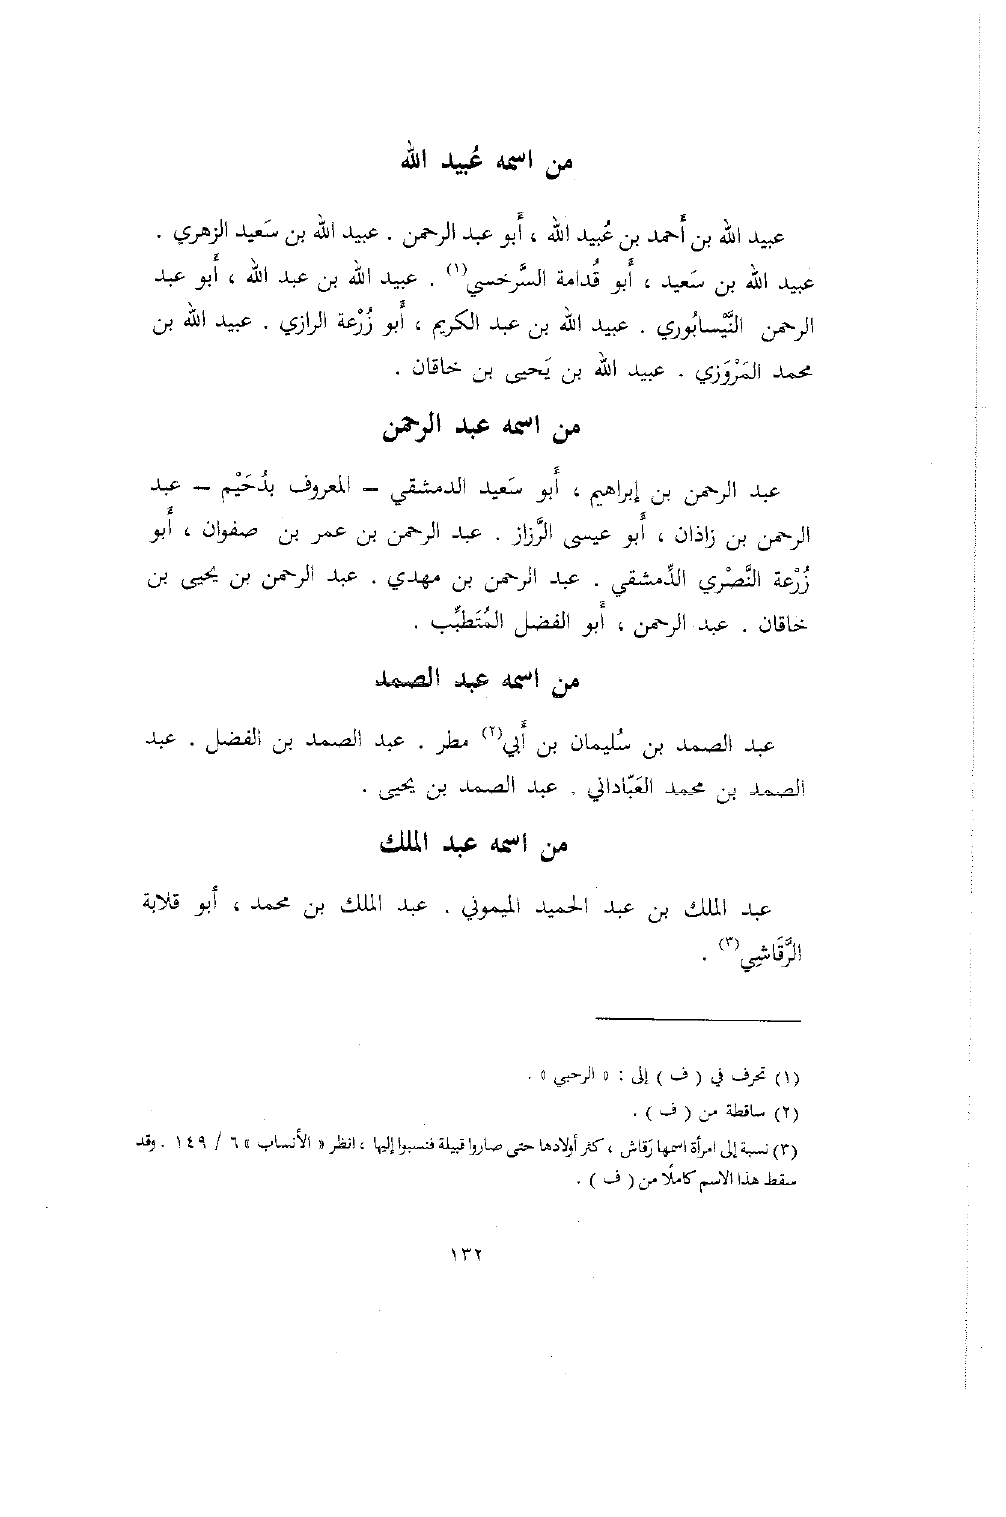 من اسمه عُبيد الله
عبيد الله بن أَحمد بن عُبيد الله ، أَبو عبد الرحمن . عبيد الله بن سَعيد الزهري .
عبيد الله بن سَعيد ، أَبو قُدامة السَّرخسي(١) . عبيد الله بن عبد الله ، أَبو عبد
الرحمن النَّيْسابُوري . عبيد الله بن عبد الكريم ، أَبو زُرْعة الرازي . عبيد الله بن
محمد المَرْوَزي . عبيد الله بن يَحيى بن خاقان .
من اسمه عبد الرحمن
عبد الرحمن بن إبراهيم ، أَبو سَعيد الدمشقي – المعروف بدُحَيْم – عبد
الرحمن بن زاذان ، أَبو عيسى الرَّزاز . عبد الرحمن بن عمر بن صفوان ، أَبو
زُرْعة النَّصْري الدِّمشقي . عبد الرحمن بن مهدي . عبد الرحمن بن يحيى بن
خاقان . عبد الرحمن ، أَبو الفضل المُتَطبِّب .
من اسمه عبد الصمد
عبد الصمد بن سُليمان بن أَبي(٢) مطر . عبد الصمد بن الفضل . عبد
الصمد بن محمد العَبّاداني . عبد الصمد بن يحيى .
من اسمه عبد الملك
عبد الملك بن عبد الحميد الميموني . عبد الملك بن محمد ، أَبو قلابة
الرَّقَاشِي(٣) .
(١) تحرف في ( ف ) إلى : « الرحبي » .
(٢) ساقطة من ( ف ) .
(٣) نسبة إلى امرأة اسمها رَقاش ، كثر أولادها حتى صاروا قبيلة فنسبوا إليها ، انظر « الأنساب » ٦ / ١٤٩ . وقد
سقط هذا الاسم كاملًا من ( ف ) .
١٣٢